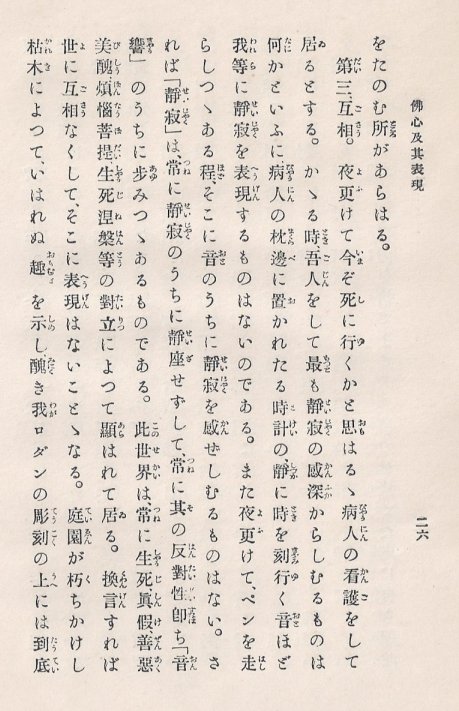 佛心及其表現
二六
をたのむ所があらはる。
第三、互相。夜更けて今ぞ死に行くかと思はるゝ病人の看護をして
居るとする。かゝる時吾人をして最も靜寂の感深からしむるものは
何かといふに、病人の枕邊に置かれたる時計の、靜に時を刻行く音ほど
我等に靜寂を表現するものはないのである。また夜更けて、ペンを走
らしつゝある程、そこに音のうちに靜寂を感ぜしむるものはない。さ
れば「靜寂」は、常に靜寂のうちに靜座せずして、常に其の反對性卽ち「音
響」のうちに步みつゝあるものである。此世界は常に生死眞假、善惡
美醜、煩惱菩提、生死涅槃等の對立によつて顯はれて居る。換言すれば
世に互相なくして、そこに表現はないことゝなる。庭園が朽ちかけし
枯木によつて、いはれぬ趣を示し醜き我ロダンの彫刻の上には到底